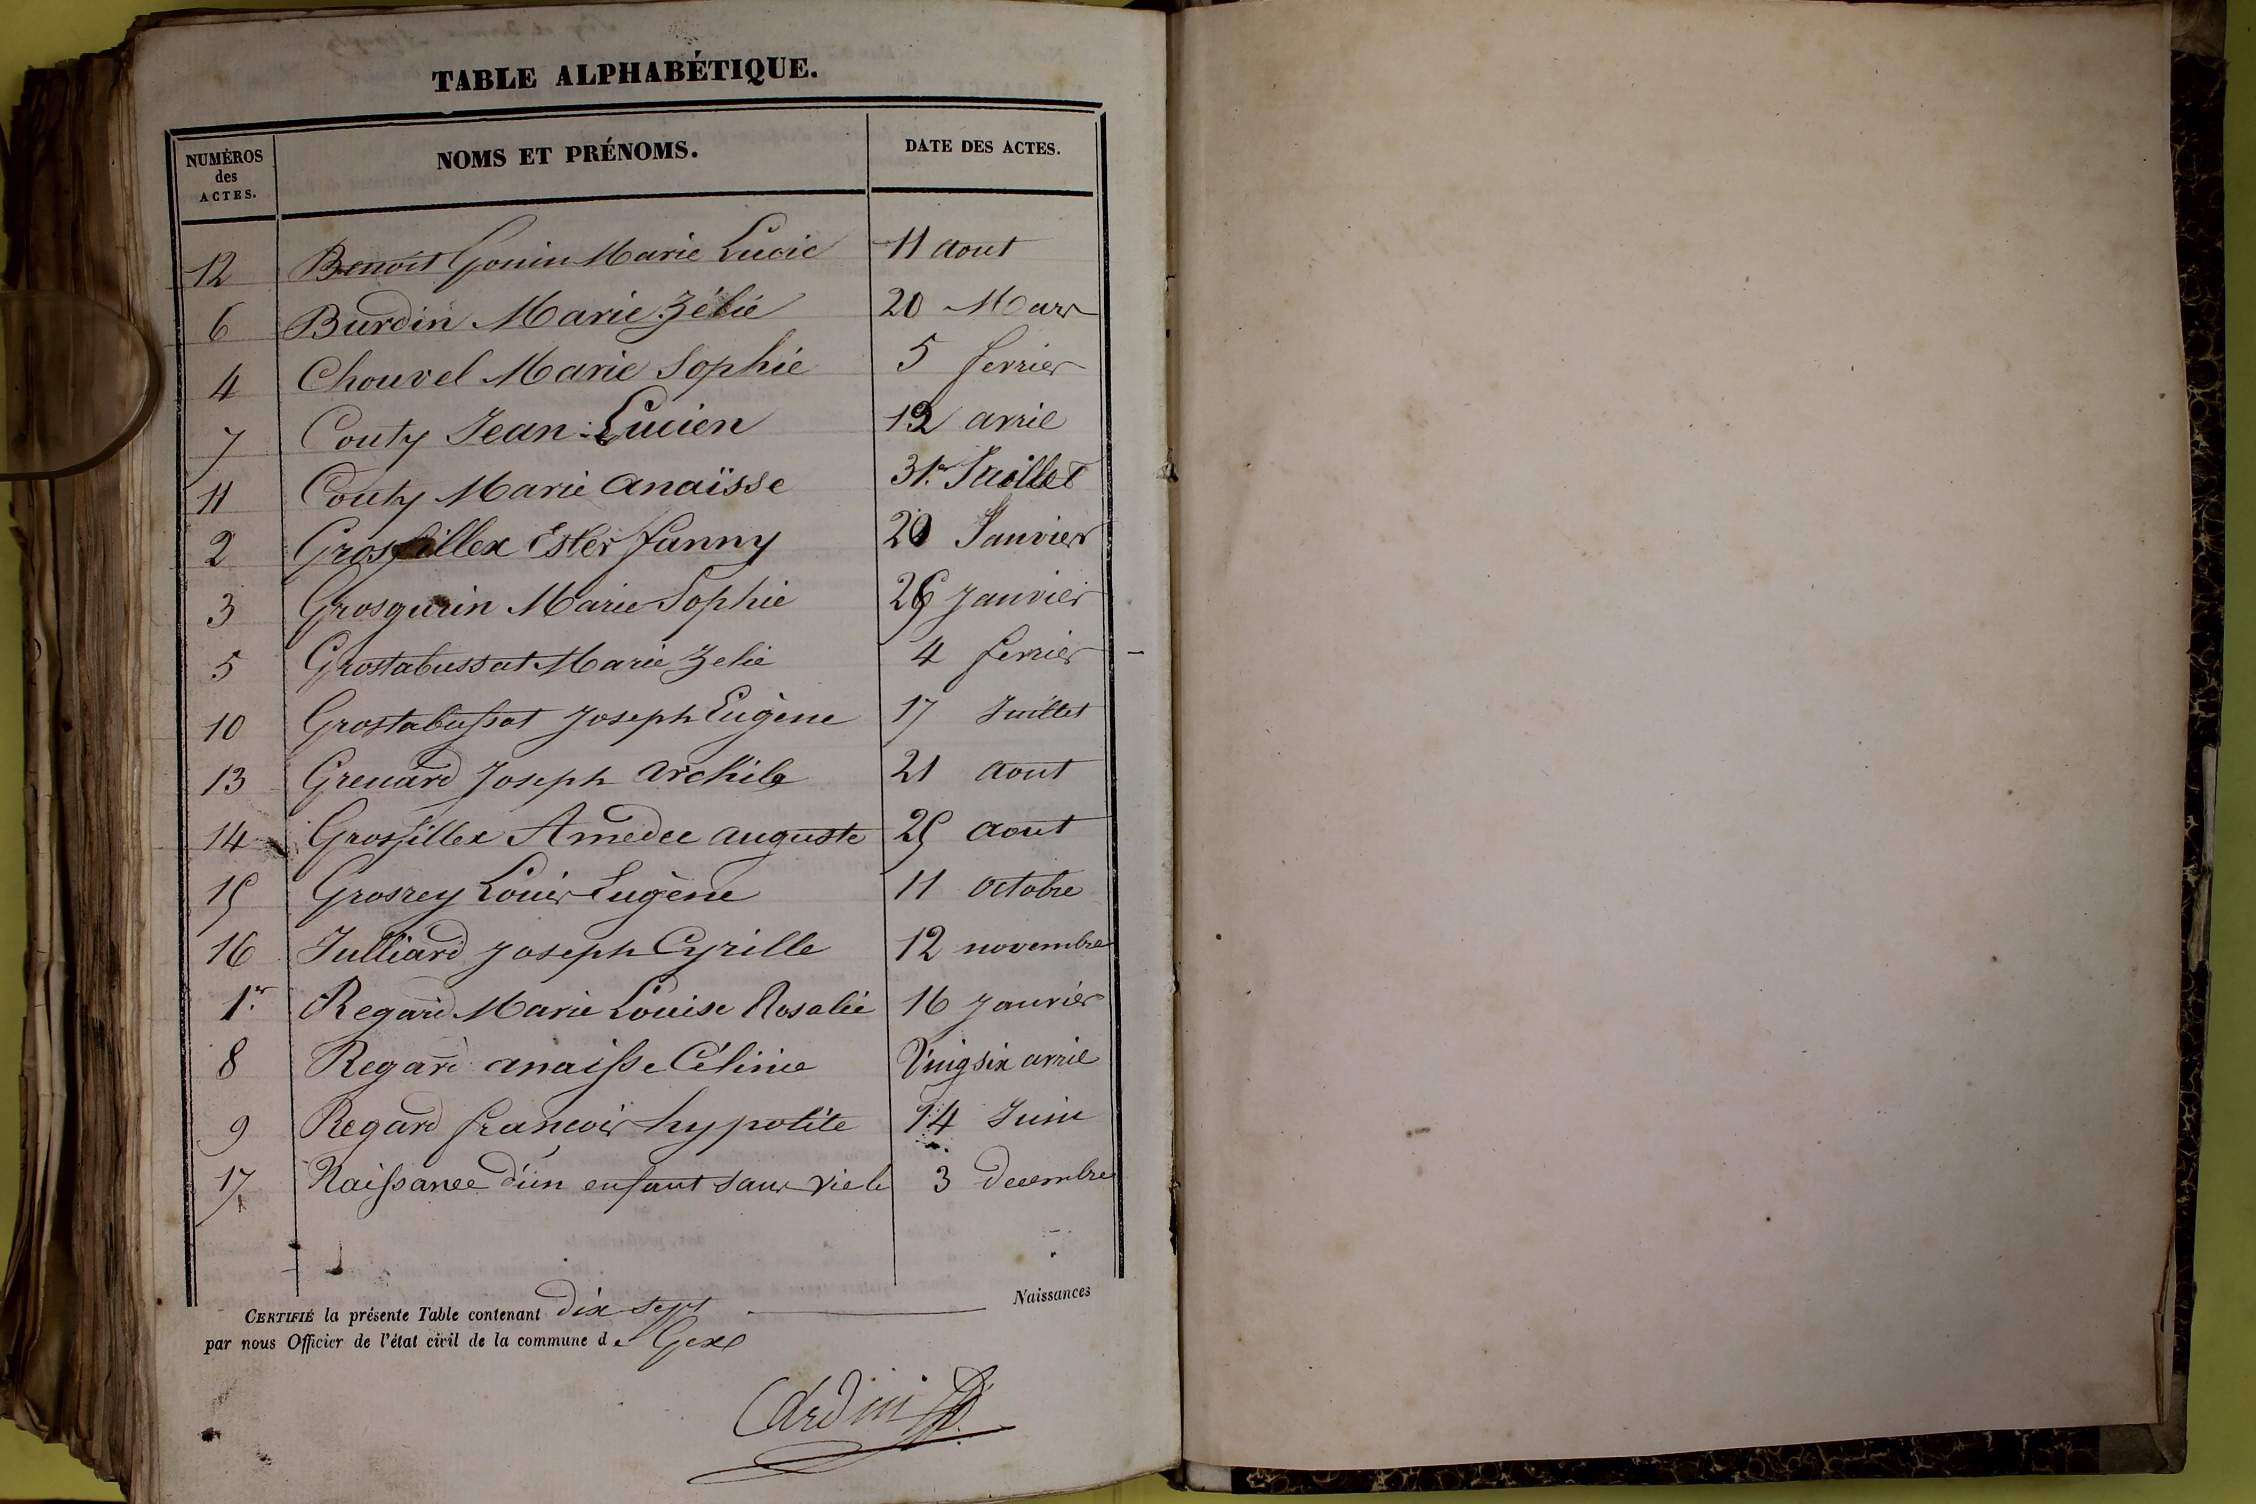 TABLE ALPHABÉTIQUE.
NUMÉROS des ACTES. NOMS ET PRÉNOMS. DATE DES ACTES.
12 Benoit Gonin Marie Lucie 11 aout
6 Burdin Marie Zélie 20 Mars
4 Chouvel Marie Sophie 5 fevrier
7 Couty Jean Lucien 12 avril
11 Couty Marie anaïsse 31. Juillet
2 Grosfillex Ester fanny 20 Janvier
3 Grosgurin Marie Sophie 26 Janvier
5 Grostabussat Marie Zelie 4 fevrier
10 Grostabussat Joseph Eugène 17 Juillet
13 Grenard Joseph archile 21 aout
14 Grosfillex Amedee auguste 25 aout
15 Grosrey Louis Eugène 11 octobre
16 Julliard Joseph Cyrille 12 novembre
1er Regard Marie Louise Rosalie 16 Janvier
8 Regard anaisse Célinie Vingsix avril
9 Regard francois hypolite 14 Juin
17 Naissance d'un enfant sans vie le 3 decembre
CERTIFIÉ la présente Table contenant dix sept Naissances
par nous Officier de l'état civil de la commune de Gex